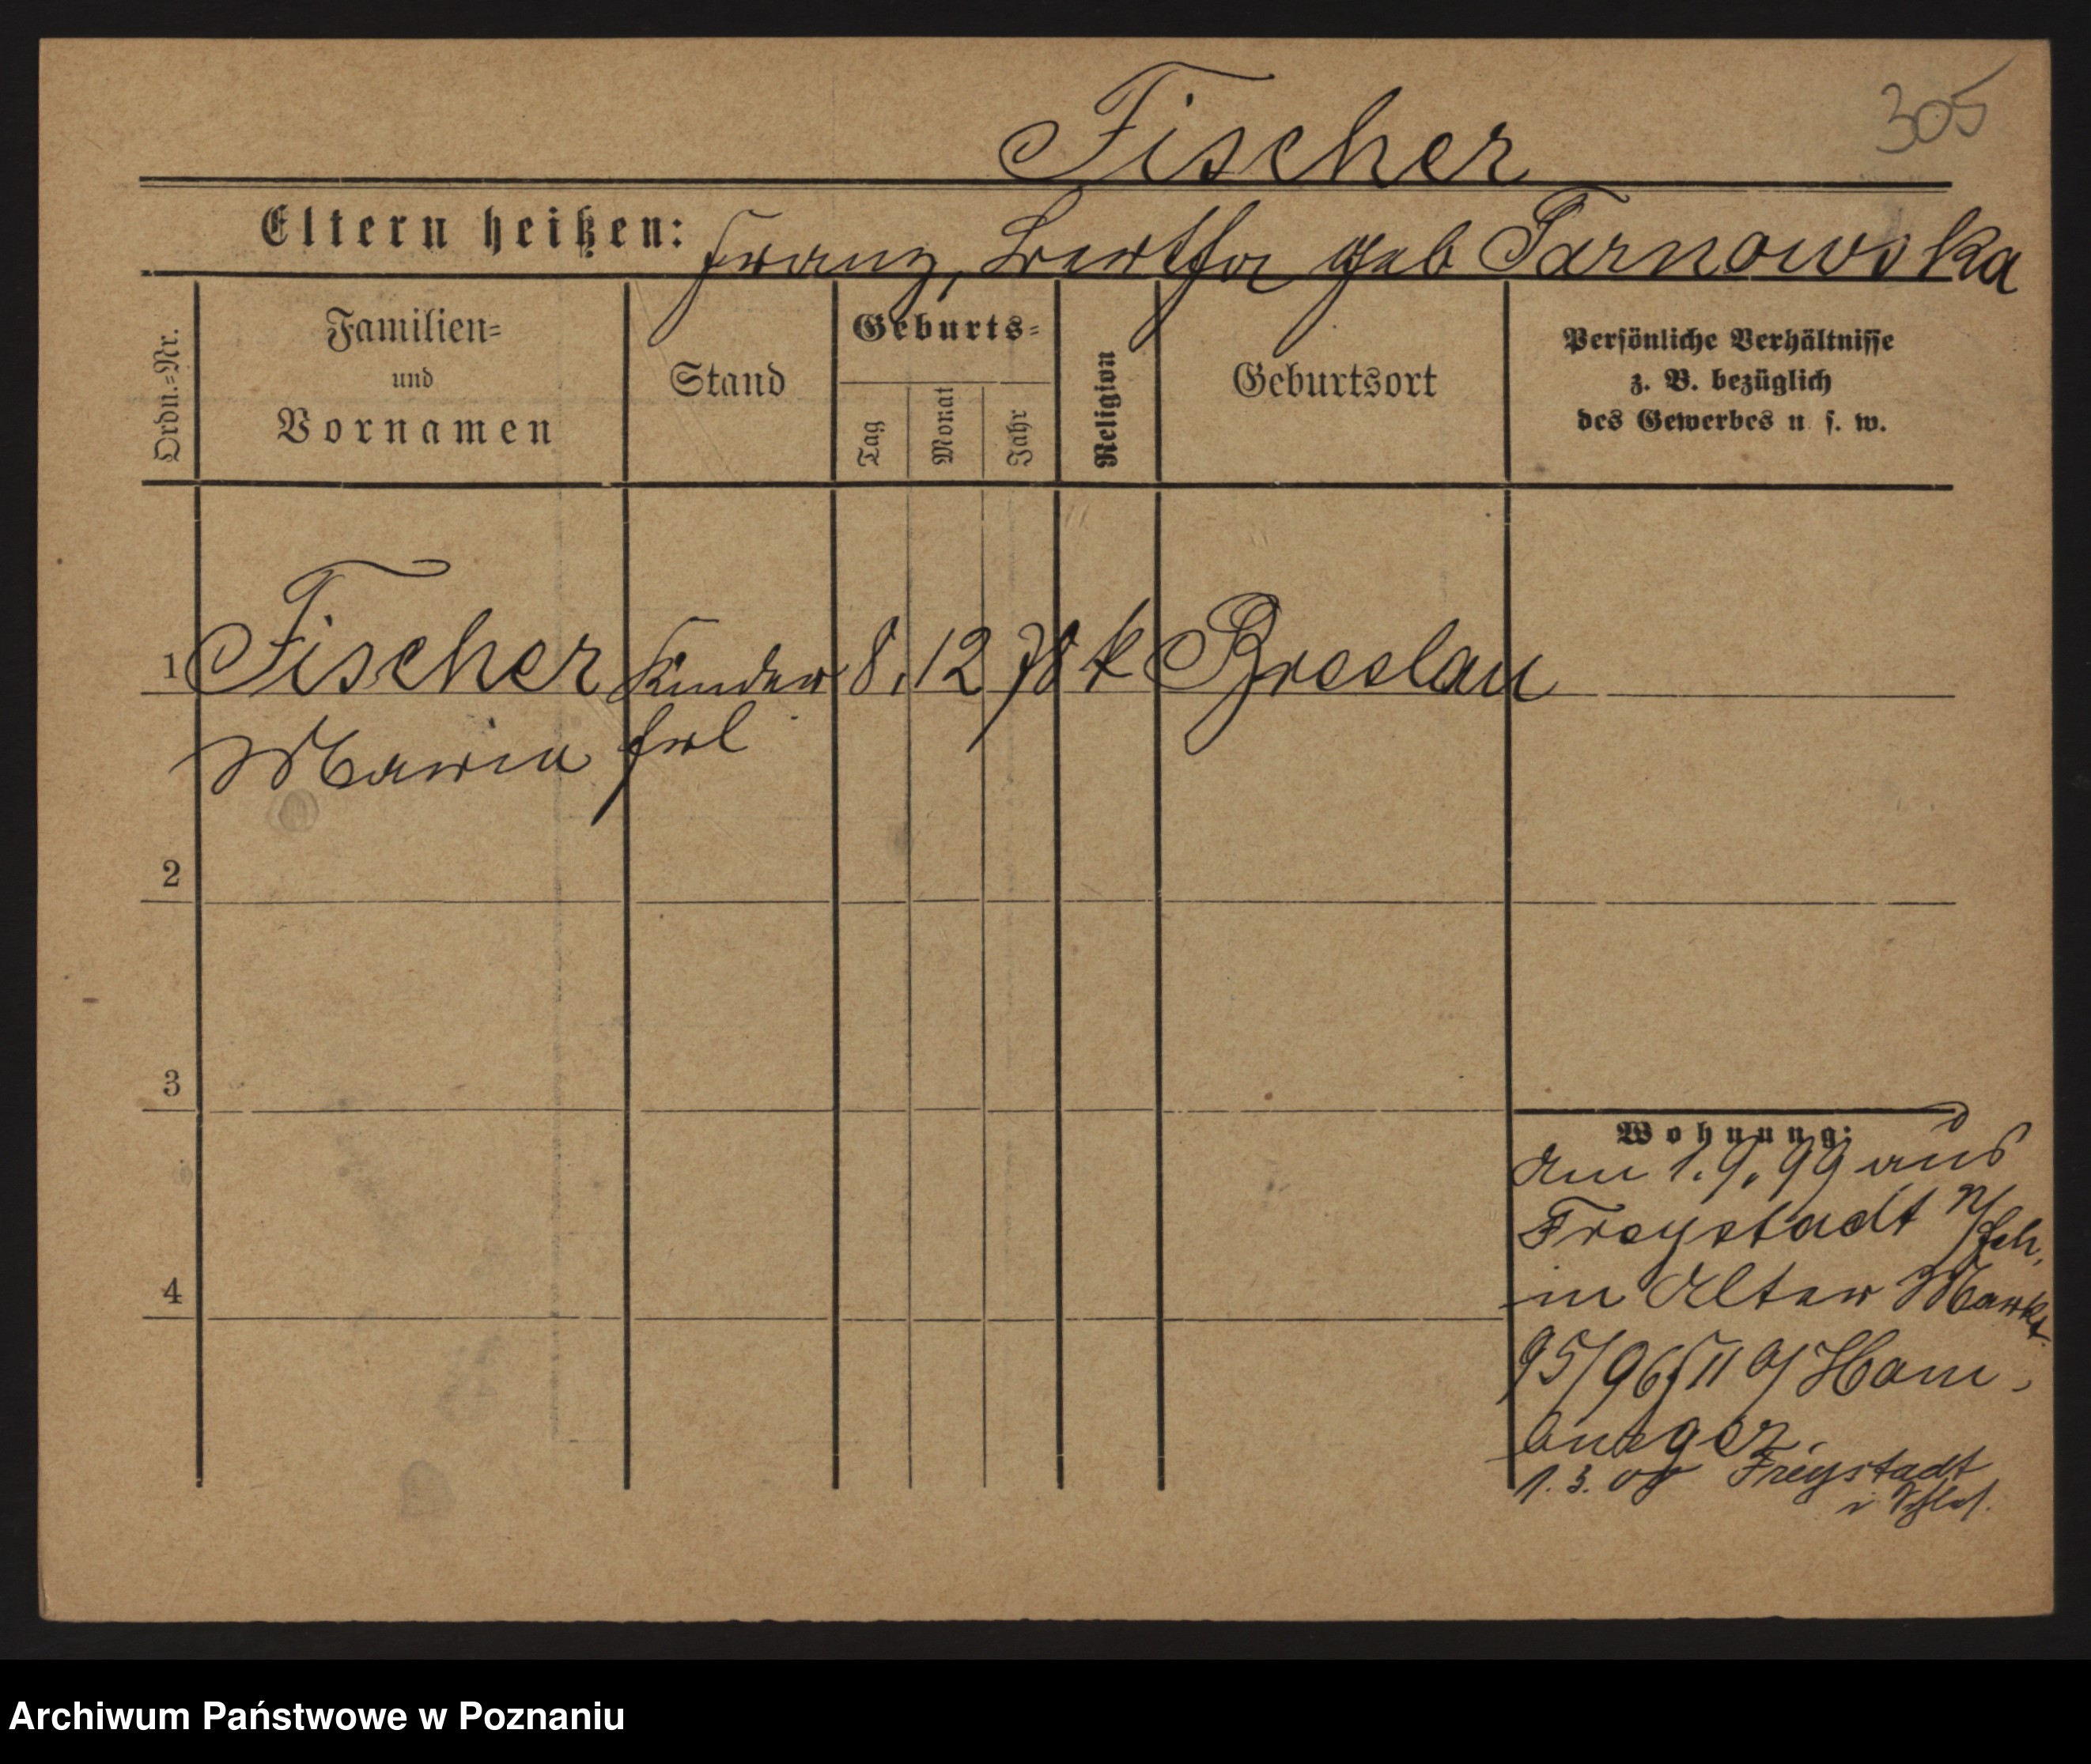 305
Fischer
Eltern heißen: Franz, Bertha geb Tarnowska
Ordn.=Nr.
Familien=
und
Vornamen
Stand
Geburts=
Tag
Monat
Jahr
Religion
Geburtsort
Persönliche Verhältnisse
z. B. bezüglich
des Gewerbes u. s. w.
1 Fischer Kinder 8. 12 78 k Breslau
Maria frl
2
3
4
Wohnung:
Am 1. 9. 99 aus
Freystadt n/Sch.
in Alter Markt
95/96 II b/ Ham-
burger
1. 3. 00 Freystadt
i Schles.
Archiwum Państwowe w Poznaniu